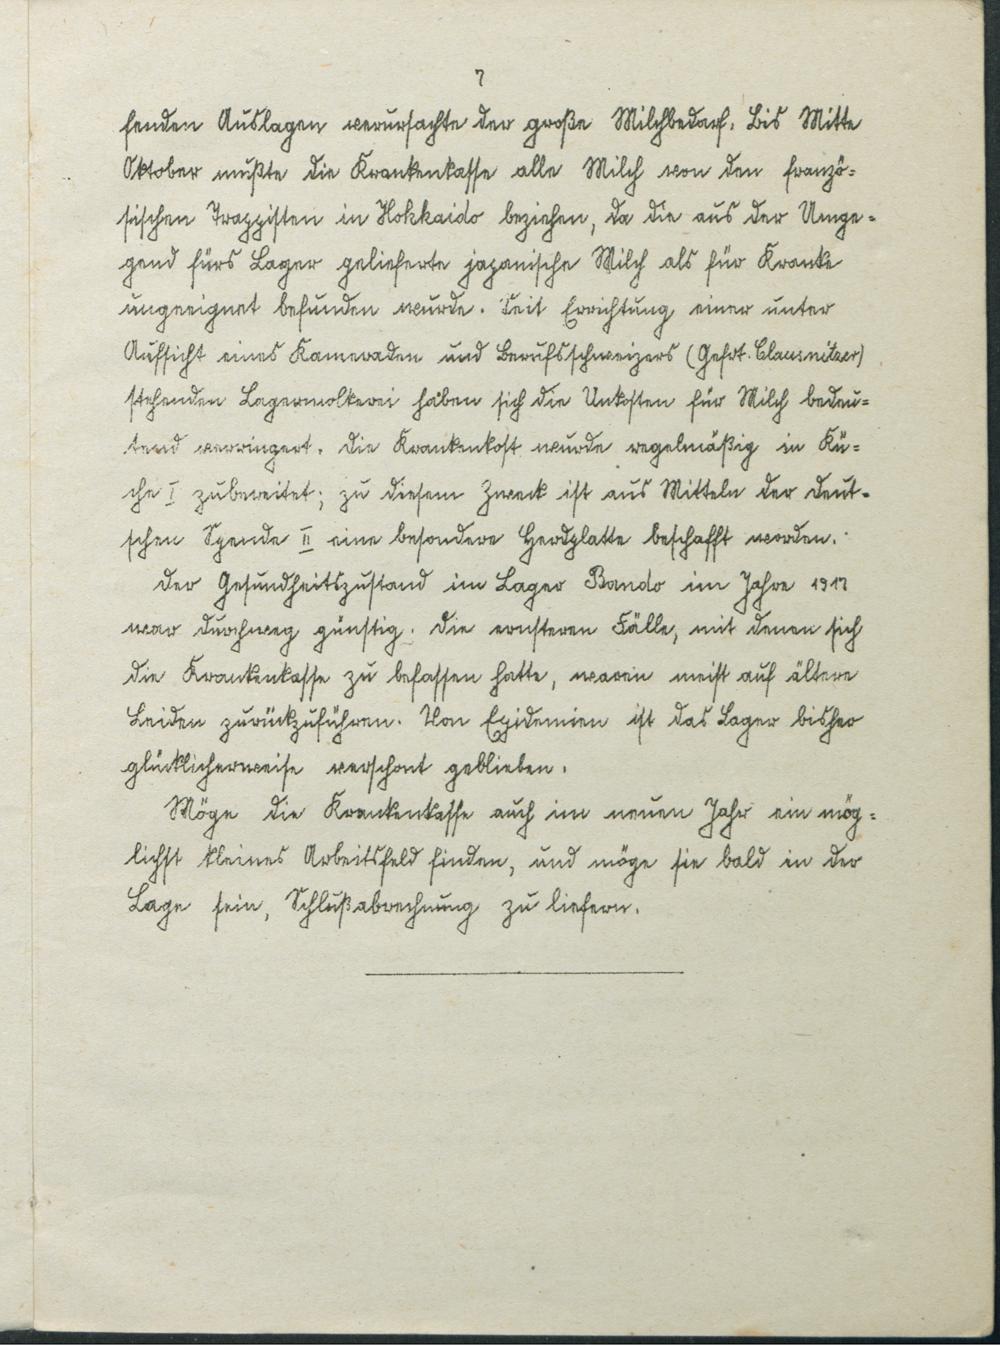 7
fenden Auslagen verursachte der große Milchbedarf. Bis Mitte
Oktober mußte die Krankenkasse alle Milch von den franzö-
sischen Trappisten in Hokkaido beziehen, da die aus der Umge-
gend fürs Lager gelieferte japanische Milch als für Kranke
ungeeignet befunden wurde. Seit Errichtung einer unter
Aufsicht eines Kameraden und Berufsschweizers (Gefrt. Clausnitzer)
stehenden Lagermolkerei haben sich die Unkosten für Milch bedeu-
tend verringert. Die Krankenkost wurde regelmäßig in Kü-
che I zubereitet; zu diesem Zweck ist aus Mitteln der Deut-
schen Spende II eine besondere Herdplatte beschafft worden.
Der Gesundheitszustand im Lager Bando im Jahre 1917
war durchweg günstig. Die ernsteren Fälle, mit denen sich
die Krankenkasse zu befassen hatte, waren meist auf ältere
Leiden zurückzuführen. Von Epidemien ist das Lager bisher
glücklicherweise verschont geblieben.
Möge die Krankenkasse auch im neuen Jahr ein mög-
lichst kleines Arbeitsfeld finden, und möge sie bald in der
Lage sein, Schlußabrechnung zu liefern.